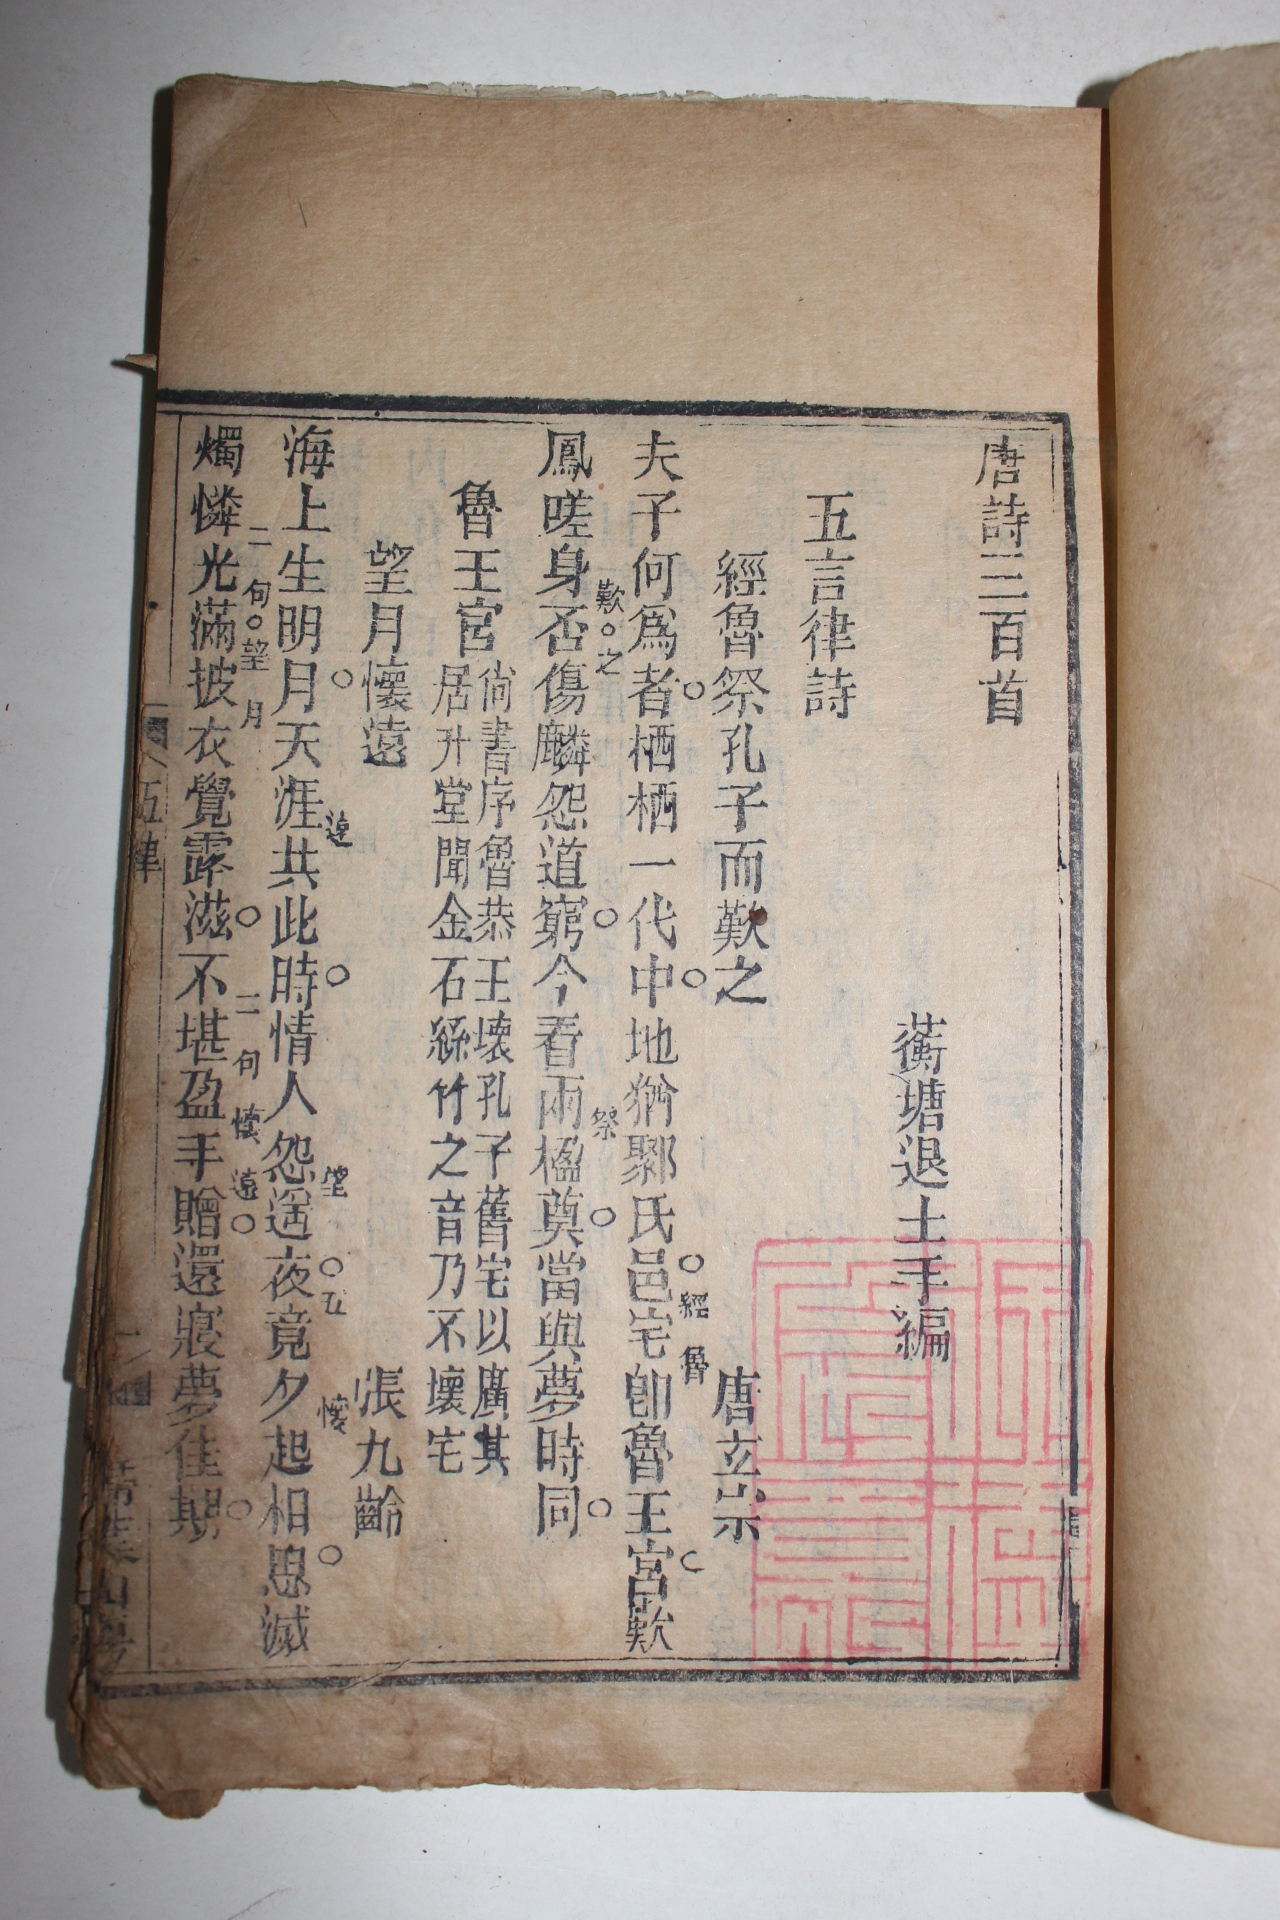 唐詩三百首
蘅塘退士手編
五言律詩
經魯祭孔子而歎之 唐玄宗
夫子何爲者栖栖一代中地猶鄹氏邑宅卽魯王宮歎
經魯
鳳嗟身否傷麟怨道窮今看兩楹奠當與夢時同
歎之 祭
魯王宮 尙書序魯恭王壞孔子舊宅以廣其
居升堂聞金石絲竹之音乃不壞宅
望月懷遠 張九齡
海上生明月天涯共此時情人怨遥夜竟夕起相思滅
遠 望 五 懷
燭憐光滿披衣覺露滋不堪盈手贈還寢夢佳期
二句望月 二句懷遠
五律
一